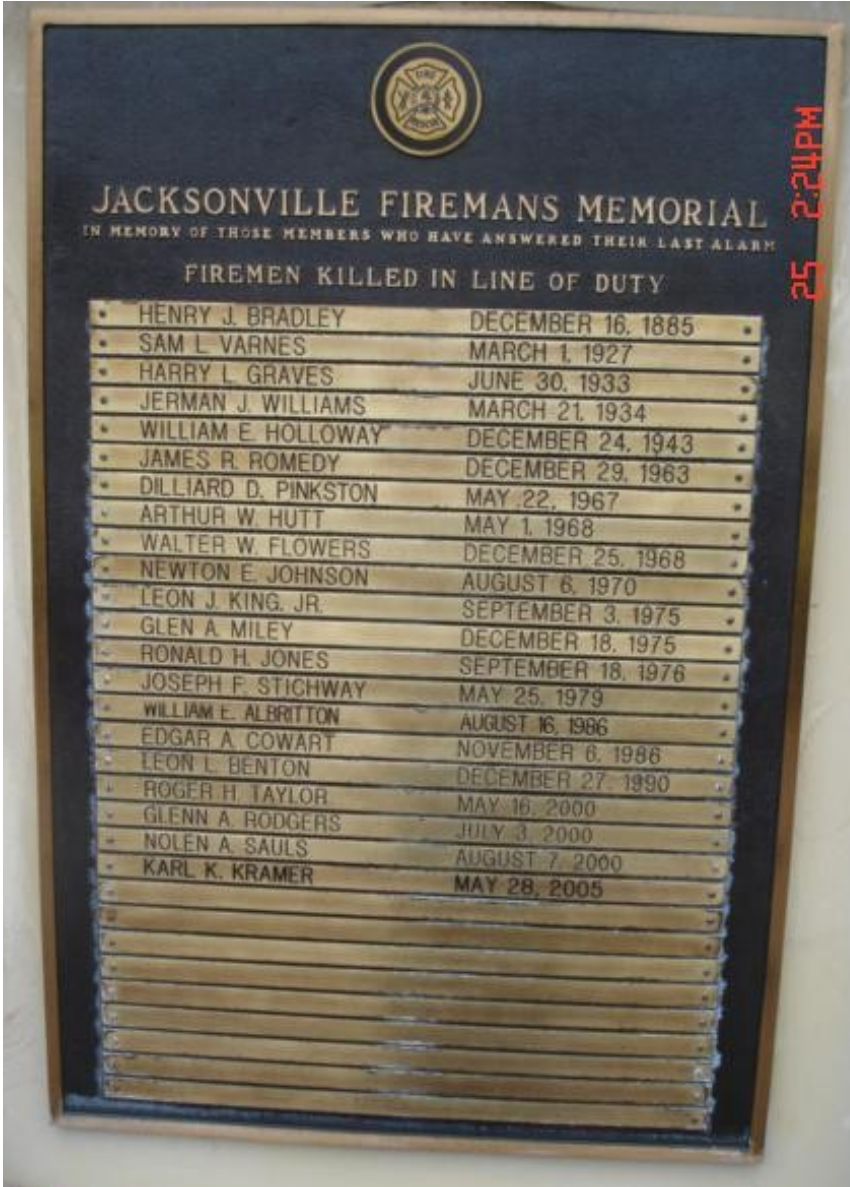 FIRE
RESCUE
JACKSONVILLE FIREMANS MEMORIAL
IN MEMORY OF THOSE MEMBERS WHO HAVE ANSWERED THEIR LAST ALARM
FIREMEN KILLED IN LINE OF DUTY
HENRY J. BRADLEY DECEMBER 16, 1885
SAM L. VARNES MARCH 1, 1927
HARRY L. GRAVES JUNE 30, 1933
JERMAN J. WILLIAMS MARCH 21, 1934
WILLIAM E. HOLLOWAY DECEMBER 24, 1943
JAMES R. ROMEDY DECEMBER 29, 1963
DILLIARD D. PINKSTON MAY 22, 1967
ARTHUR W. HUTT MAY 1, 1968
WALTER W. FLOWERS DECEMBER 25, 1968
NEWTON E. JOHNSON AUGUST 6, 1970
LEON J. KING, JR. SEPTEMBER 3, 1975
GLEN A. MILEY DECEMBER 18, 1975
RONALD H. JONES SEPTEMBER 18, 1976
JOSEPH F. STICHWAY MAY 25, 1979
WILLIAM E. ALBRITTON AUGUST 16, 1986
EDGAR A. COWART NOVEMBER 6, 1986
LEON L. BENTON DECEMBER 27, 1990
ROGER H. TAYLOR MAY 16, 2000
GLENN A. RODGERS JULY 3, 2000
NOLEN A. SAULS AUGUST 7, 2000
KARL K. KRAMER MAY 28, 2005
25 2:24PM